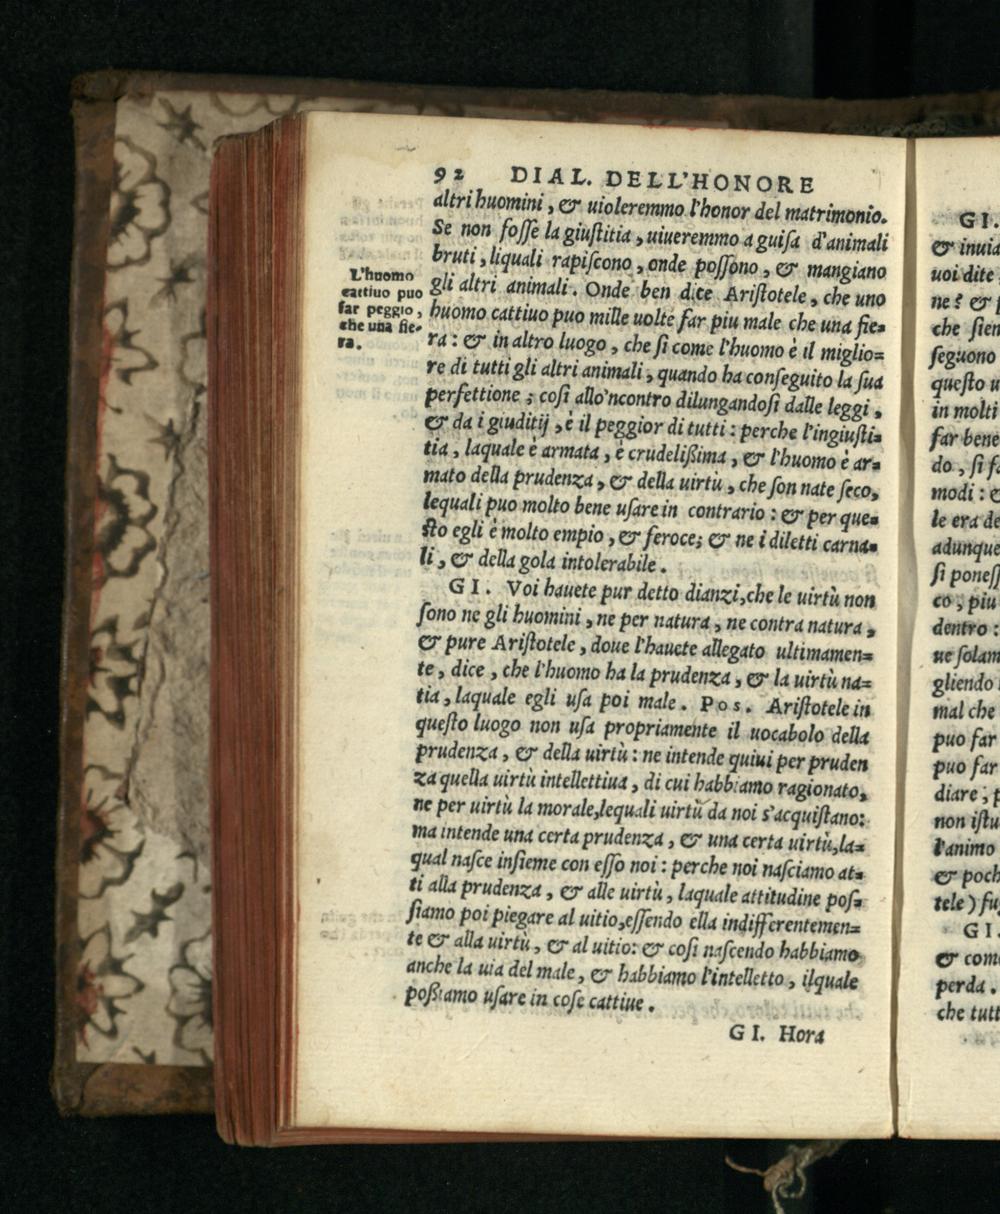 92 DIAL. DELL'HONORE
altri huomini, & uioleremmo l'honor del matrimonio.
Se non foſſe la giuſtitia, uiueremmo a guiſa d'animali
bruti, liquali rapiſcono, onde poſſono, & mangiano
gli altri animali. Onde ben dice Ariſtotele, che uno
huomo cattiuo puo mille uolte far piu male che una fie=
ra: & in altro luogo, che ſi come l'huomo è il miglio=
re di tutti gli altri animali, quando ha conſeguito la ſua
perfettione; coſi allo'ncontro dilungandoſi dalle leggi,
& da i giuditij, è il peggior di tutti: perche l'ingiuſti=
tia, laquale è armata, è crudelißima, & l'huomo è ar=
mato della prudenza, & della uirtù, che ſon nate ſeco,
lequali puo molto bene uſare in contrario: & per que=
ſto egli è molto empio, & feroce; & ne i diletti carna=
li, & della gola intolerabile.
GI. Voi hauete pur detto dianzi, che le uirtù non
ſono ne gli huomini, ne per natura, ne contra natura,
& pure Ariſtotele, doue l'hauete allegato ultimamen=
te, dice, che l'huomo ha la prudenza, & la uirtù na=
tia, laquale egli uſa poi male. Pos. Ariſtotele in
queſto luogo non uſa propriamente il uocabolo della
prudenza, & della uirtù: ne intende quiui per pruden
za quella uirtù intellettiua, di cui habbiamo ragionato,
ne per uirtù la morale, lequali uirtù da noi s'acquiſtano:
ma intende una certa prudenza, & una certa uirtù, la=
qual naſce inſieme con eſſo noi: perche noi naſciamo at=
ti alla prudenza, & alle uirtù, laquale attitudine poſ=
ſiamo poi piegare al uitio, eſſendo ella indifferentemen=
te & alla uirtù, & al uitio: & coſi naſcendo habbiamo
anche la uia del male, & habbiamo l'intelletto, ilquale
poßiamo uſare in coſe cattiue.
GI. Hora
L'huomo
cattiuo puo
far peggio,
che una fie=
ra.
GI.
& inuia
uoi dite
ne? &
che ſien
ſeguono
queſto u
in molti
far bene
do, ſi fa
modi:
le era de
adunque
ſi poneſſ
co, piu
dentro:
ue ſolam
gliendo
mal che
puo far
puo far
diare, p
non iſtu
l'animo
& poch
tele) fu
GI.
& come
perda.
che tutt